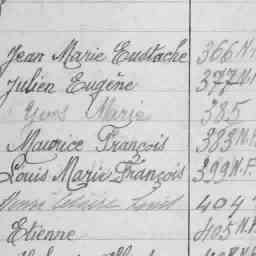 Jean Marie Eustache 366 N.
Julien Eugène 377 N.
Yves Marie 385
Maurice François 383 N.F.
Louis Marie François 399 N.F.
404
Etienne 405 N.F.